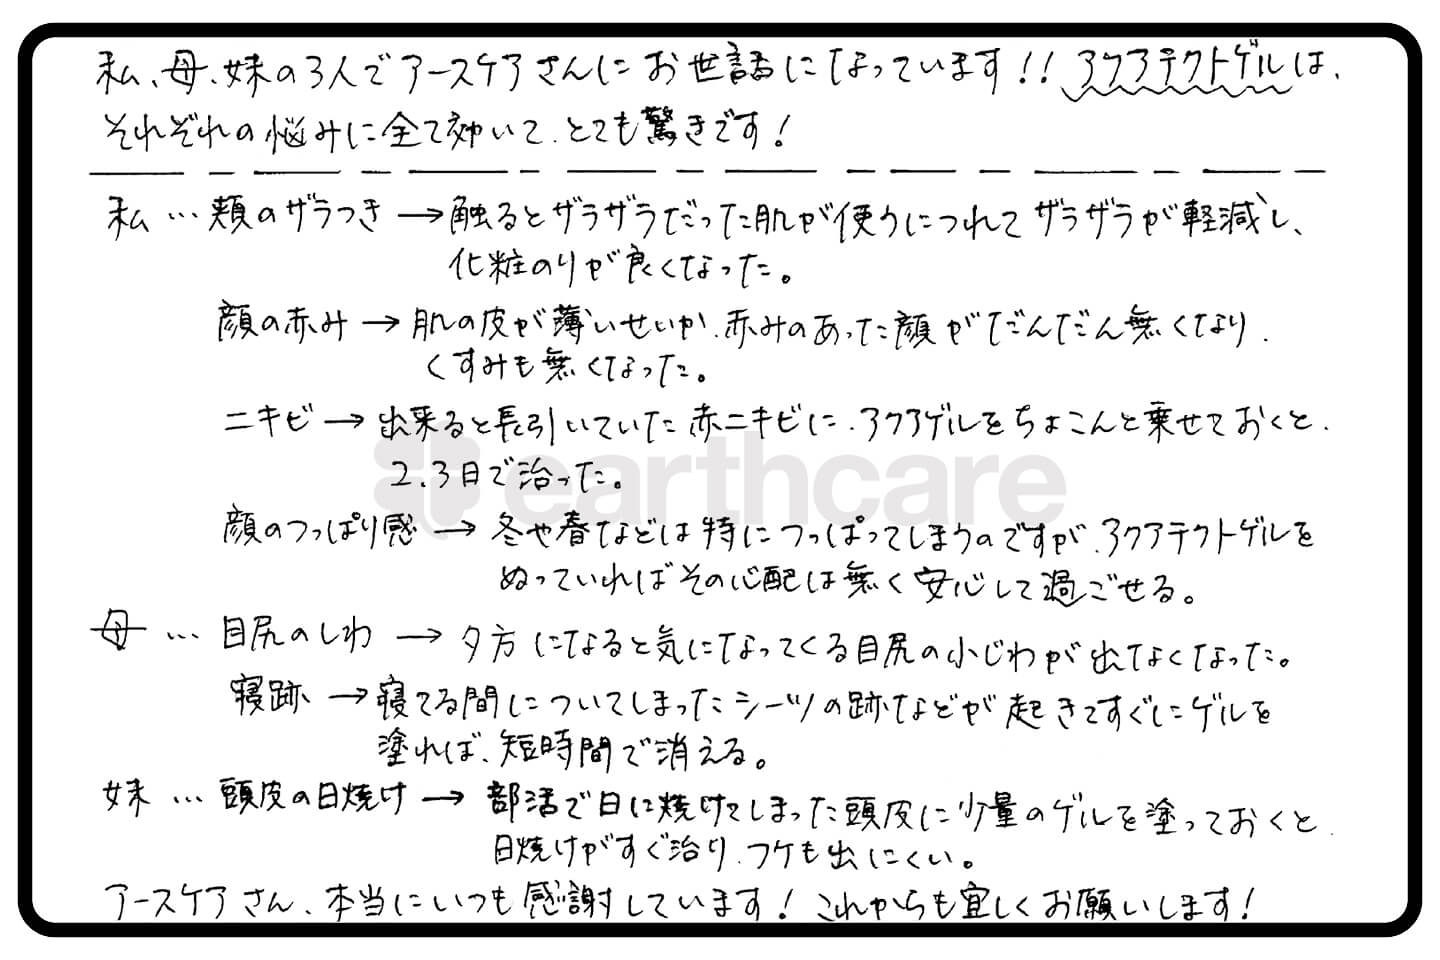 私、母、妹の3人でアースケアさんにお世話になっています!! アクアテクトゲルは、
それぞれの悩みに全て効いて、とても驚きです!
私 … 頬のザラつき → 触るとザラザラだった肌が使うにつれてザラザラが軽減し、
化粧のりが良くなった。
顔の赤み → 肌の皮が薄いせいか、赤みのあった顔がだんだん無くなり、
くすみも無くなった。
ニキビ → 出来ると長引いていた赤ニキビに、アクアゲルをちょこんと乗せておくと、
2、3日で治った。
earthcare
顔のつっぱり感 → 冬や春などは特につっぱってしまうのですが、アクアテクトゲルを
ぬっていればその心配は無く安心して過ごせる。
母 … 目尻のしわ → 夕方になると気になってくる目尻の小じわが出なくなった。
寝跡 → 寝てる間についてしまったシーツの跡などが起きてすぐにゲルを
塗れば、短時間で消える。
妹 … 頭皮の日焼け → 部活で日に焼けてしまった頭皮に少量のゲルを塗っておくと、
日焼けがすぐ治り、フケも出にくい。
アースケアさん、本当にいつも感謝しています! これからも宜しくお願いします!